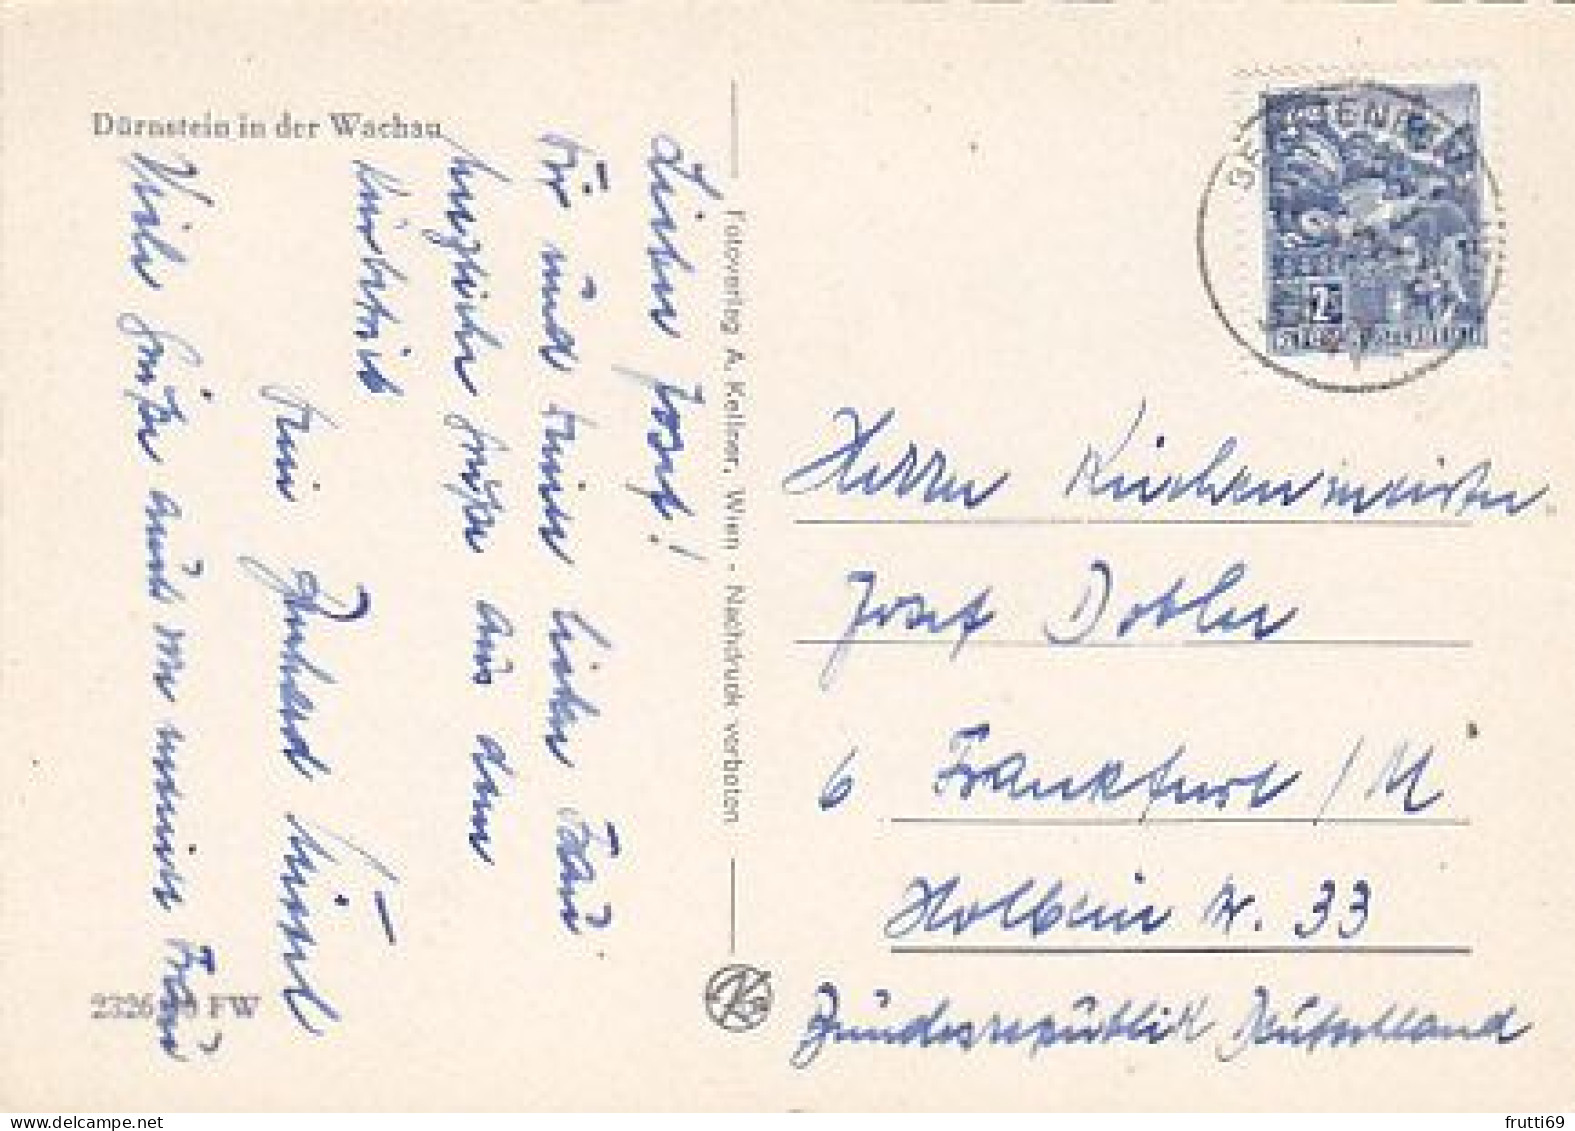 Dürnstein in der Wachau
Lieber Josef!
Dir und Deiner lieben Frau
herzliche Grüße aus dem
Dein
Viele Grüße auch von meiner Frau
2326 FW
Fotoverlag A. Kellner, Wien - Nachdruck verboten
2
Herrn Kirchenmeister
Josef Dobler
6 Frankfurt / M
Holbein str. 33
Bundesrepublik Deutschland
frutti69